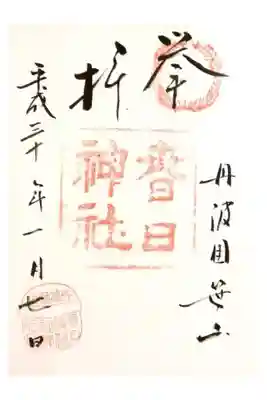 奉拝
丹波国笹山
春日
神社
平成三十年一月七日